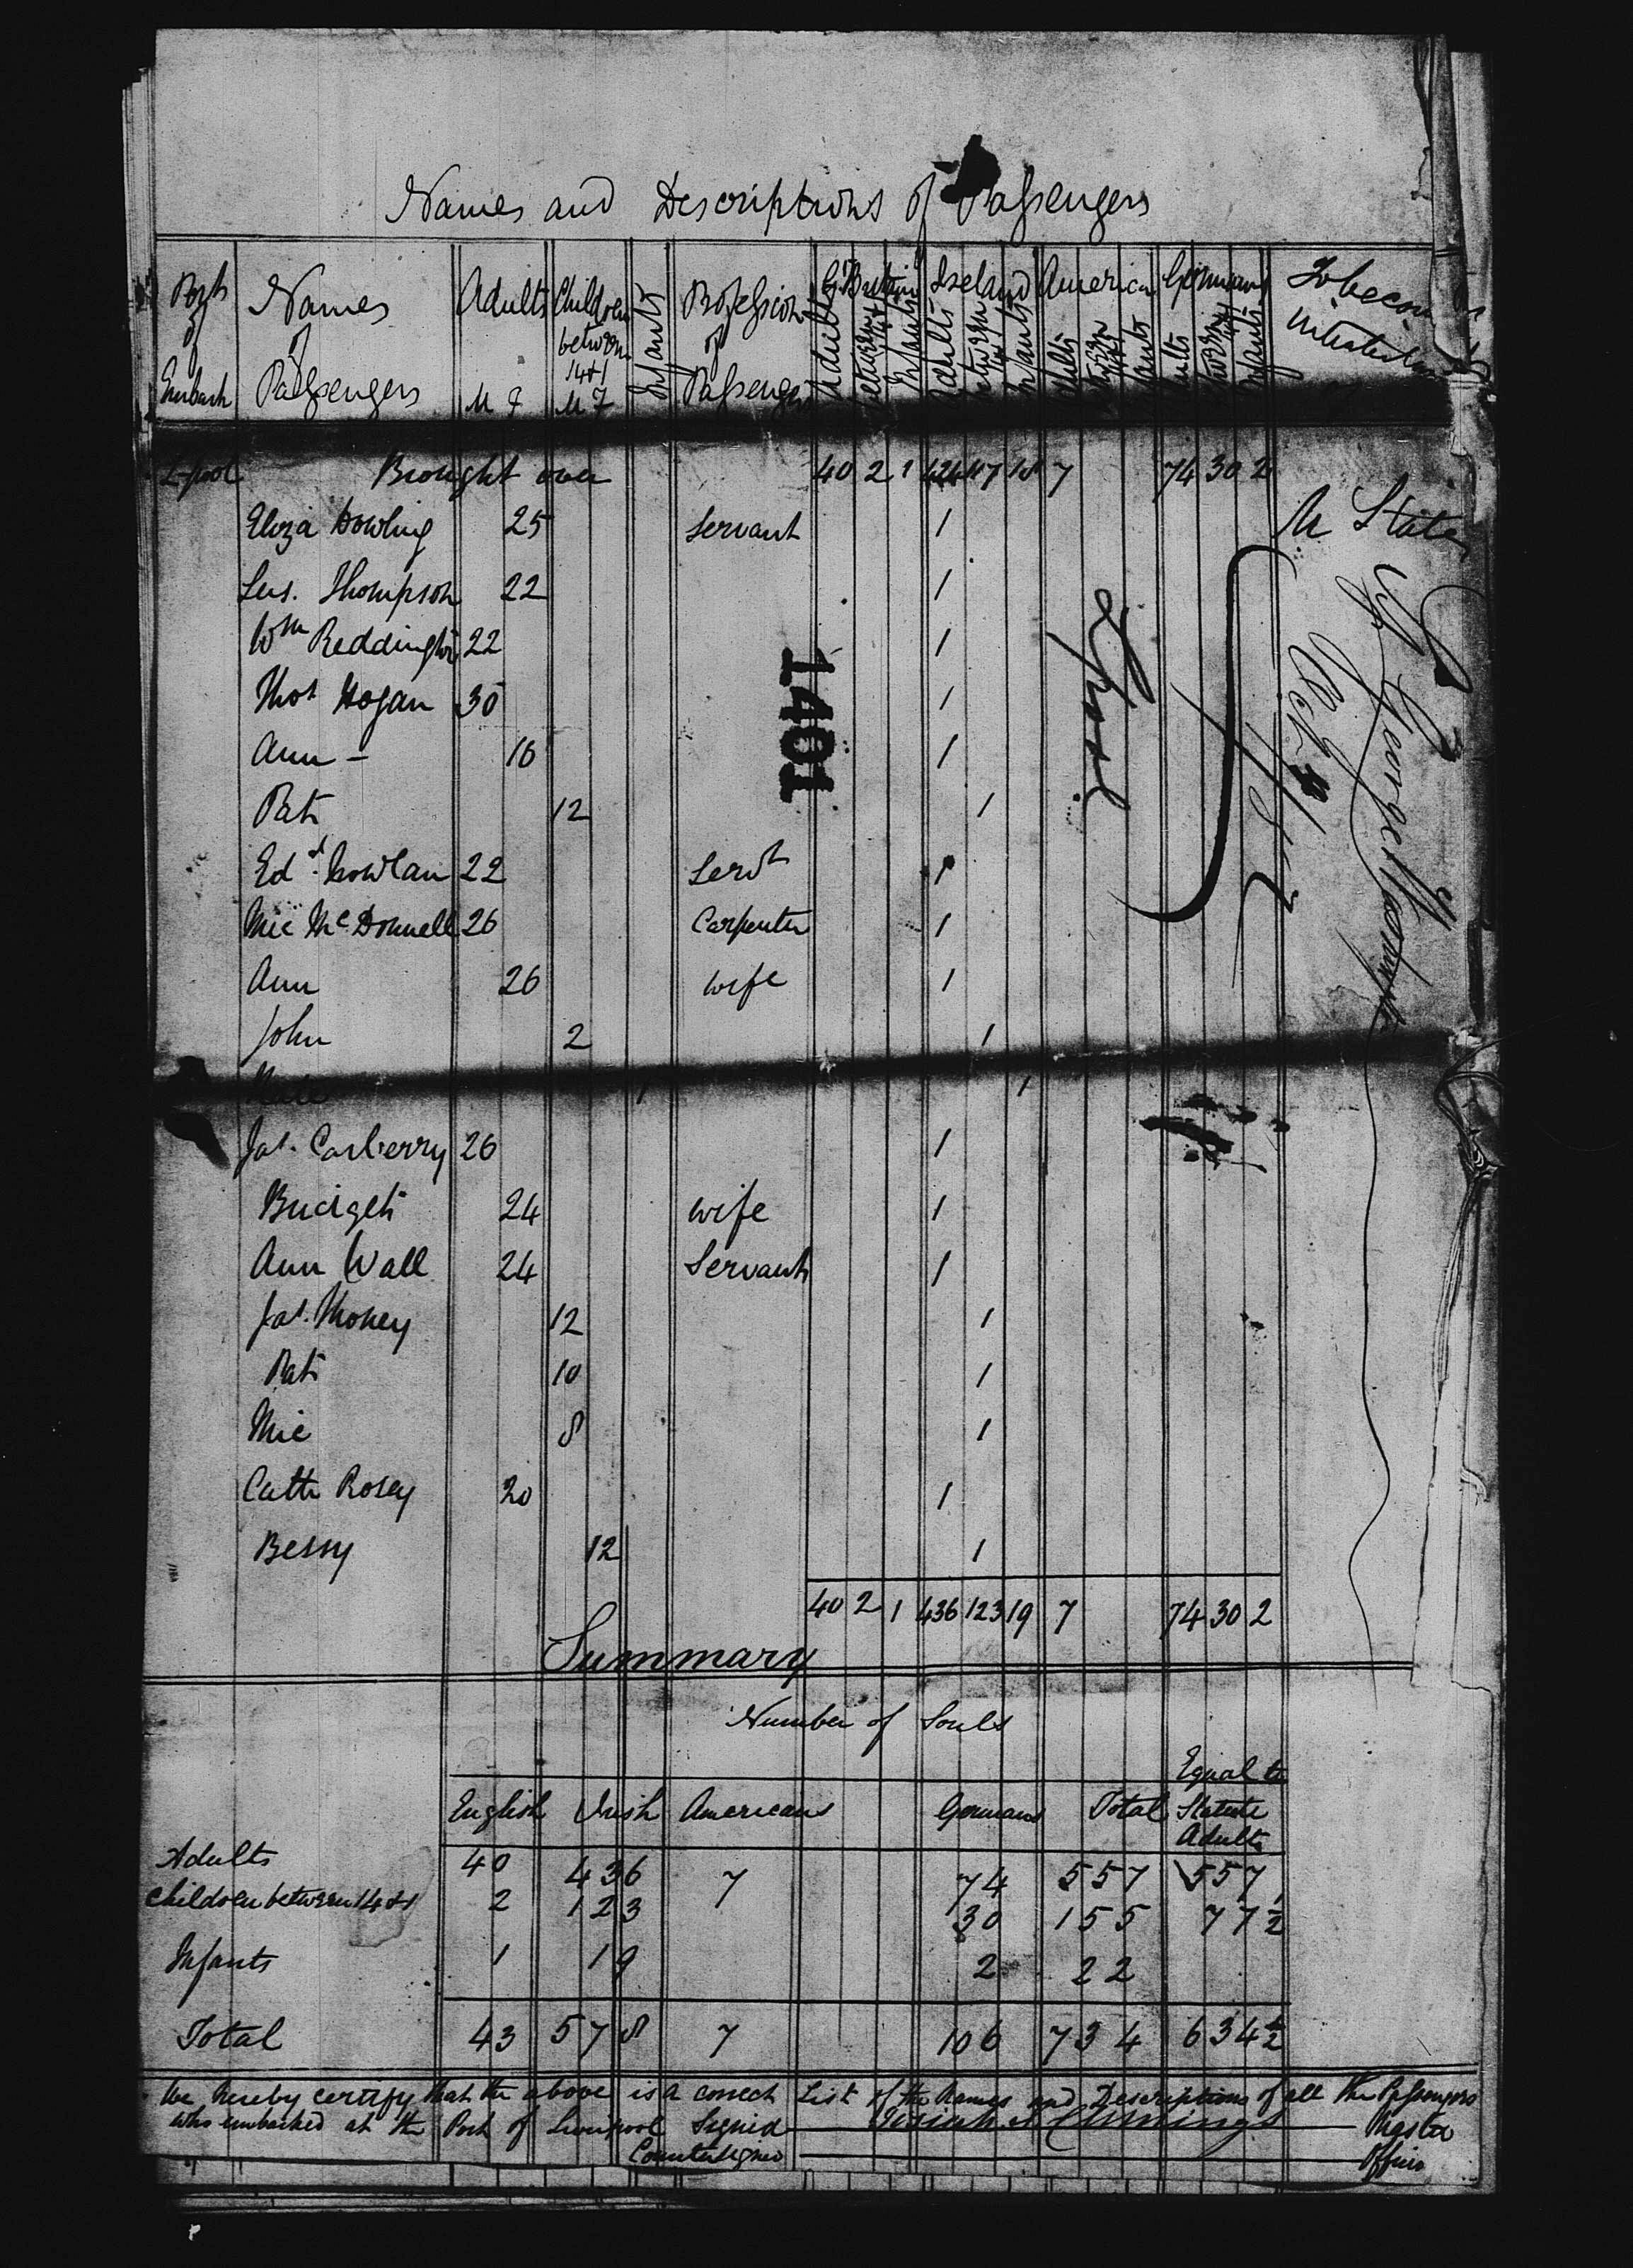 Names and Descriptions of Passengers
Port of Embark
Names of Passengers
Adults M F
Children between 14 & 1 M F
Infants
Profession of Passengers
Gt Britain Adults between 14 & 1 Infants
Ireland Adults between 14 & 1 Infants
America Adults
German Adults Infants
L-pool Brought over 40 2 1 424 117 18 7 74 30 2
Eliza Dowling 25 Servant 1 U States
Thompson 22 1
Wm Reddington 22 1
Thos Hogan 30 1
Ann - 16 1
Pat 12 1
Edd. Nowlan 22 Servt 1
Mic McDonnell 26 Carpenter 1
Ann 26 wife 1
John 2 1
1 1
Jas. Carberry 26 1
Bridget 24 wife 1
Ann Wall 24 Servant 1
12 1
Pat 10 1
Mic 8 1
Cath Rosey 20 1
Bessy 12 1
40 2 1 436 123 19 7 74 30 2
1401
Lpool
N Y
Sh George Washington
Summary
Number of Souls
English Irish Americans Germans Total Equal to Statute Adults
Adults 40 436 7 74 557 557
Children between 14 & 1 2 123 30 155 77 1/2
Infants 1 19 2 22
Total 43 578 7 106 734 634 1/2
We hereby certify that the above is a correct List of the Names and Descriptions of all the Passengers
who embarked at the Port of Liverpool Signed Josiah S Cummings Master
Countersigned Officer